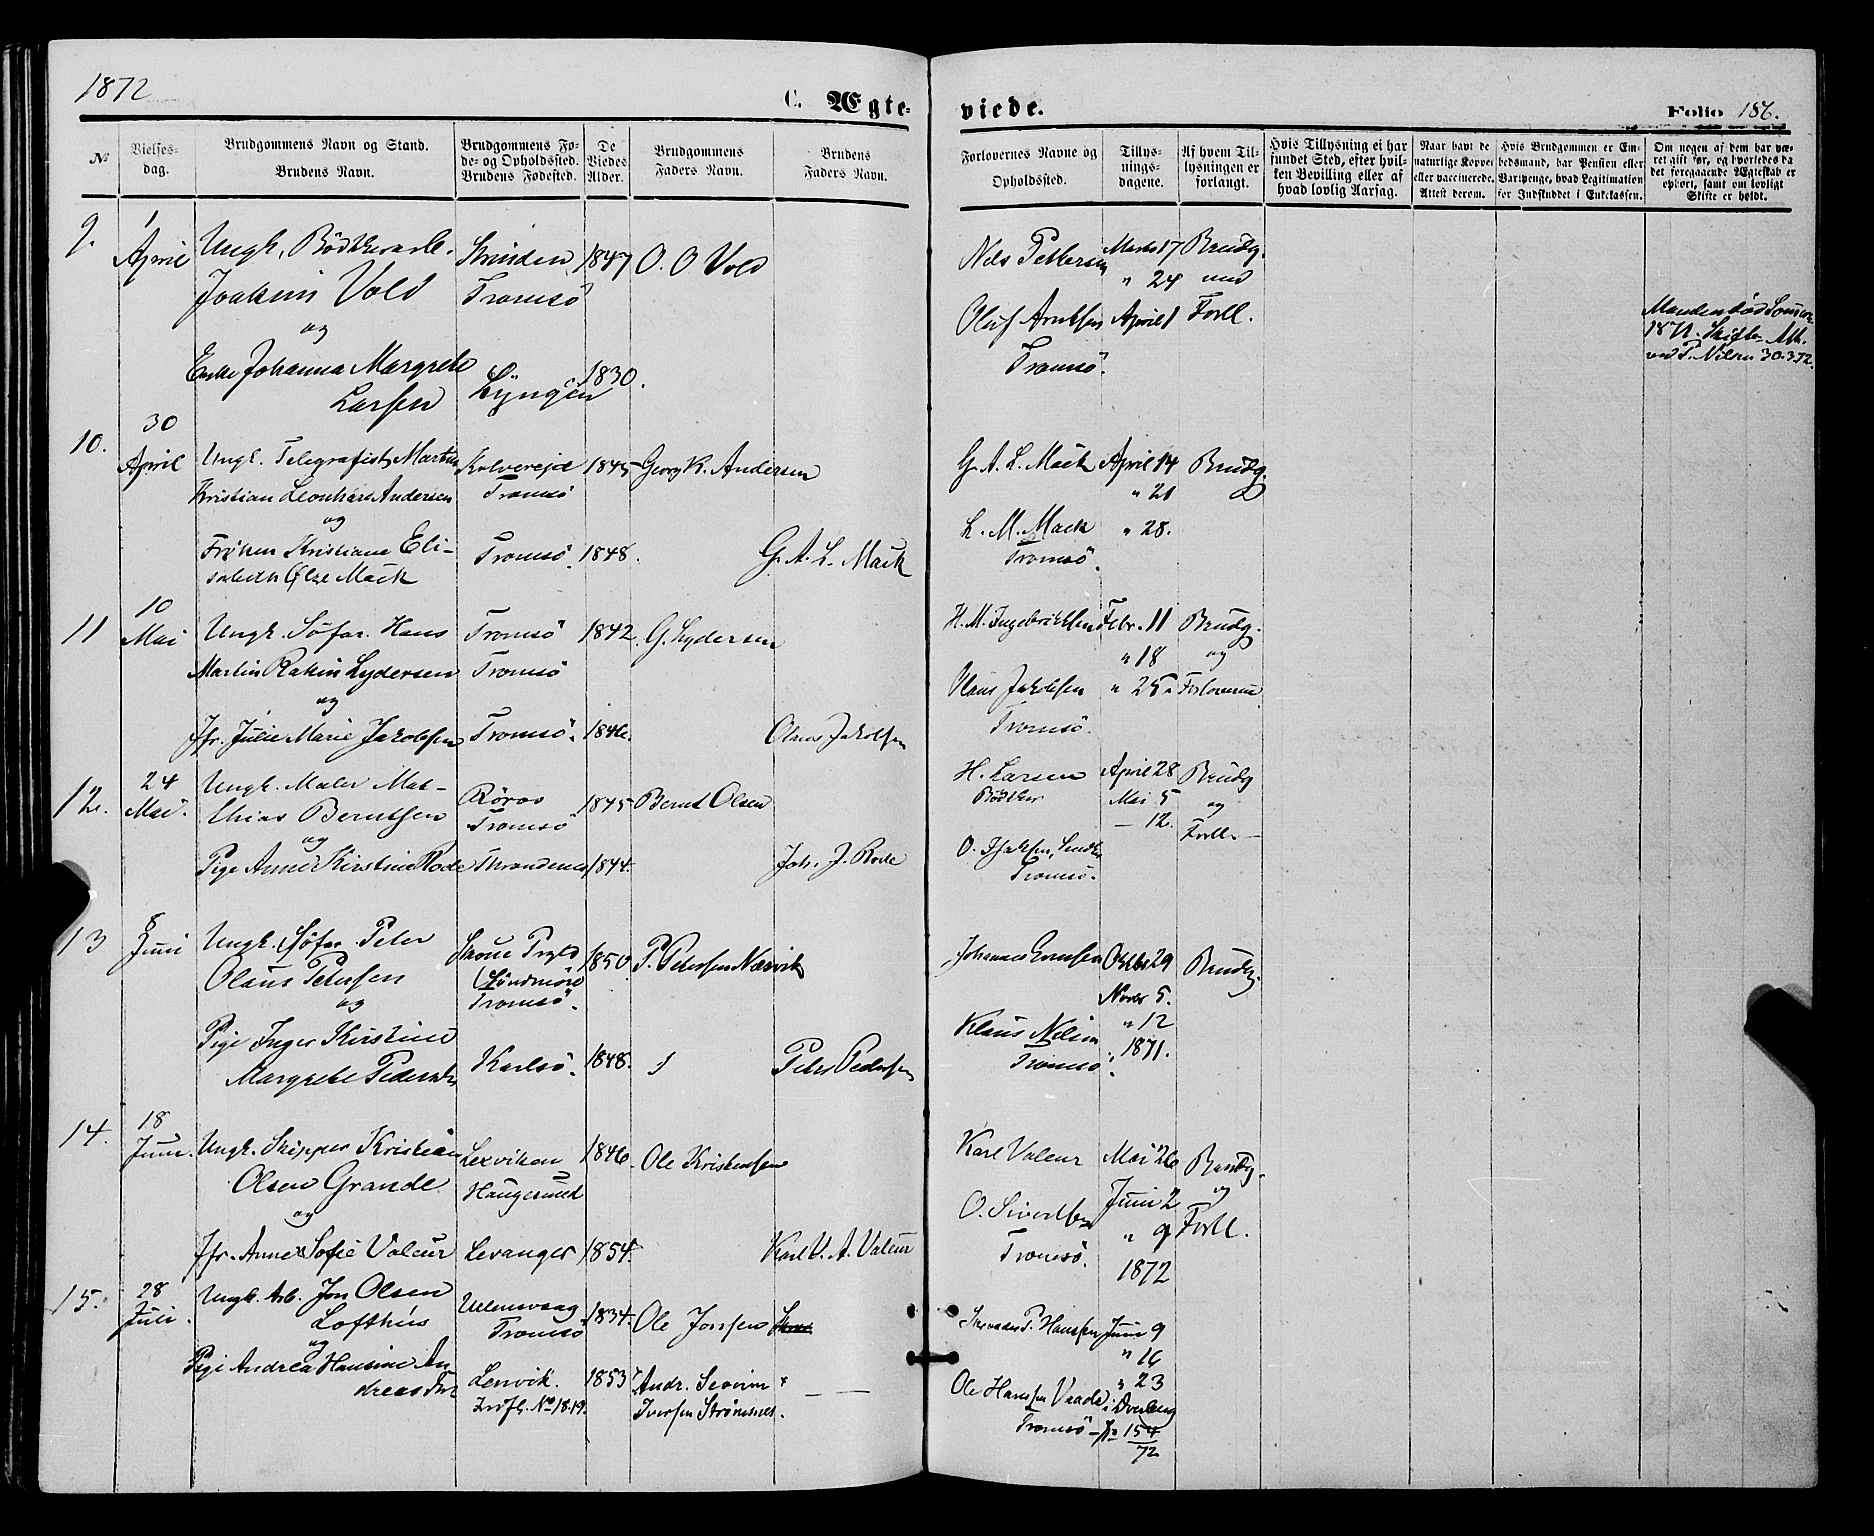 1872
C. Ægte-
viede.
Folio 186.
№
Vielses-
dag.
Brudgommens Navn og Stand.
Brudens Navn.
Brudgommens Fø-
de- og Opholdssted.
Brudens Fødested.
De
Viedes
Alder.
Brudgommens
Faders Navn.
Brudens
Faders Navn.
Forlovernes Navne og
Opholdssted.
Tillys-
nings-
dagene.
Af hvem Til-
lysningen er
forlangt.
Hvis Tillysning ei har
fundet Sted, efter hvil-
ken Bevilling eller af
hvad lovlig Aarsag.
Naar havt de
naturlige Kopper
eller vaccinerede.
Attest derom.
Hvis Brudgommen er Em-
bedsmand, har Pension eller
Vartpenge, hvad Legitimation
for Indskuddet i Enkekassen.
Om nogen af dem har væ-
ret gift før, og hvorledes da
det foregaaende Ægteskab er
ophørt, samt om lovligt
Skifte er holdt.
9.
1
April
Ungk. Bödkerarb.
Joakim Vold
og
Enke Johanna Margrete
Larsen
Strinden
Tromsö
Lyngen
1847
1830.
O. O Vold
Nels Pettersen
Oluf Arntsen
Tromsö.
Marts 17
" 24
April 1
Brudg.
med
Forll.
Manden död Sommer
1871. Skifte Att.
ved P. Nilsen 30.3.72.
10.
30
April
Ungk. Telegrafist Martin
Kristian Leonhard Andersen
og
Fröken Kristiane Eli-
sabeth Ölze Mack
Kolvereid
Tromsö
Tromsö.
1845
1848.
Georg K. Andersen
G. A. L. Mack
G. A. L. Mack
L. M. Mack
Tromsö.
April 14
" 21
" 28.
Brudg.
11
10
Mai
Ungk. Söfar. Hans
Martin Lydersen
og
Jfr. Julie Marie Jakobsen
Tromsö
Tromsö
Tromsö.
1842
1846.
G. Lydersen
Olaus Jakobsen
H. M. Ingebriktsen
Olaus Jakobsen
Tromsö.
Febr. 11
" 18
" 25
Brudg.
og
Forloverne
12.
24
Mai.
Ungk. Maler Mat-
thias Berntsen
og
Pige Anne Kirstine Rode
Röros
Tromsö
Throndenes
1845
1844.
Bernt Olsen
Joh. J. Rode
H. Larsen
Bödker
Tromsö.
April 28
Mai 5
— 12.
Brudg
og
Forll.
13
8
Juni
Ungk. Söfar. Peter
Olaus Petersen
og
Pige Inger Kirstine
Margrete Pedersdtr
Söndmöre
Tromsö.
Karlsö.
1850
1848.
P. Petersen Nærvik
Peter Pedersen
Klaus Nilsen
Tromsö.
Oktbr 29
Novbr 5.
" 12
1871.
Brudg.
14.
18
Juni.
Ungk. Skipper Kristian
Olsen Grande
og
Jfr. Anne Sofie Valeur
Lexviken
Haugesund
Levanger
1846
1854.
Ole Kristensen
Karl V. A. Valeur
Karl Valeur
O. Sivertsen
Tromsö.
Mai 26
Juni 2
" 9
1872
Brudg.
og
Forll.
15.
28
Juli.
Ungk. Arb. Jon Olsen
Lofthus
og
Pige Andrea Hansine An
dreasdtr
Ullensvang
Tromsö
Lenvik.
1834.
1853
Ole Jonsen
Andr. Severin
Iversen Strömsnes.
— —
P. Hanssen
Ole Hansen
Tromsö
Juni 9
" 16
" 23
154
72